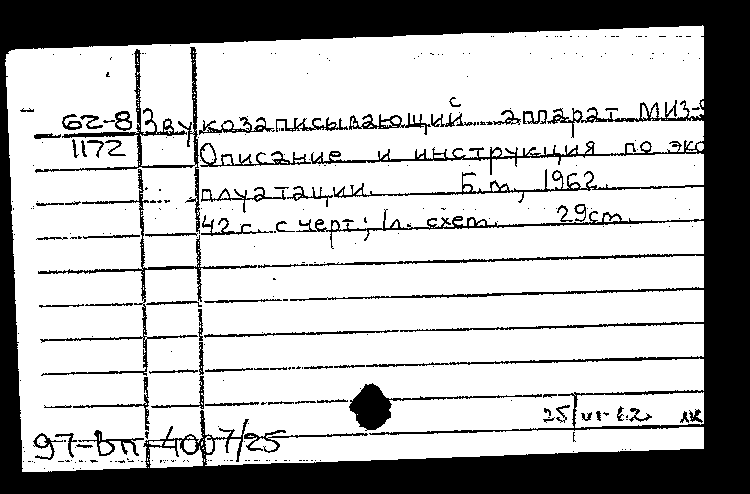 62-8 Звукозаписывающий аппарат МИЗ-
1172 Описание и инструкция по экс
плуатации. Б.м., 1962.
42 с. с черт; 1л. схем. 29см.
25 VI-62
97-Вп-4007/25